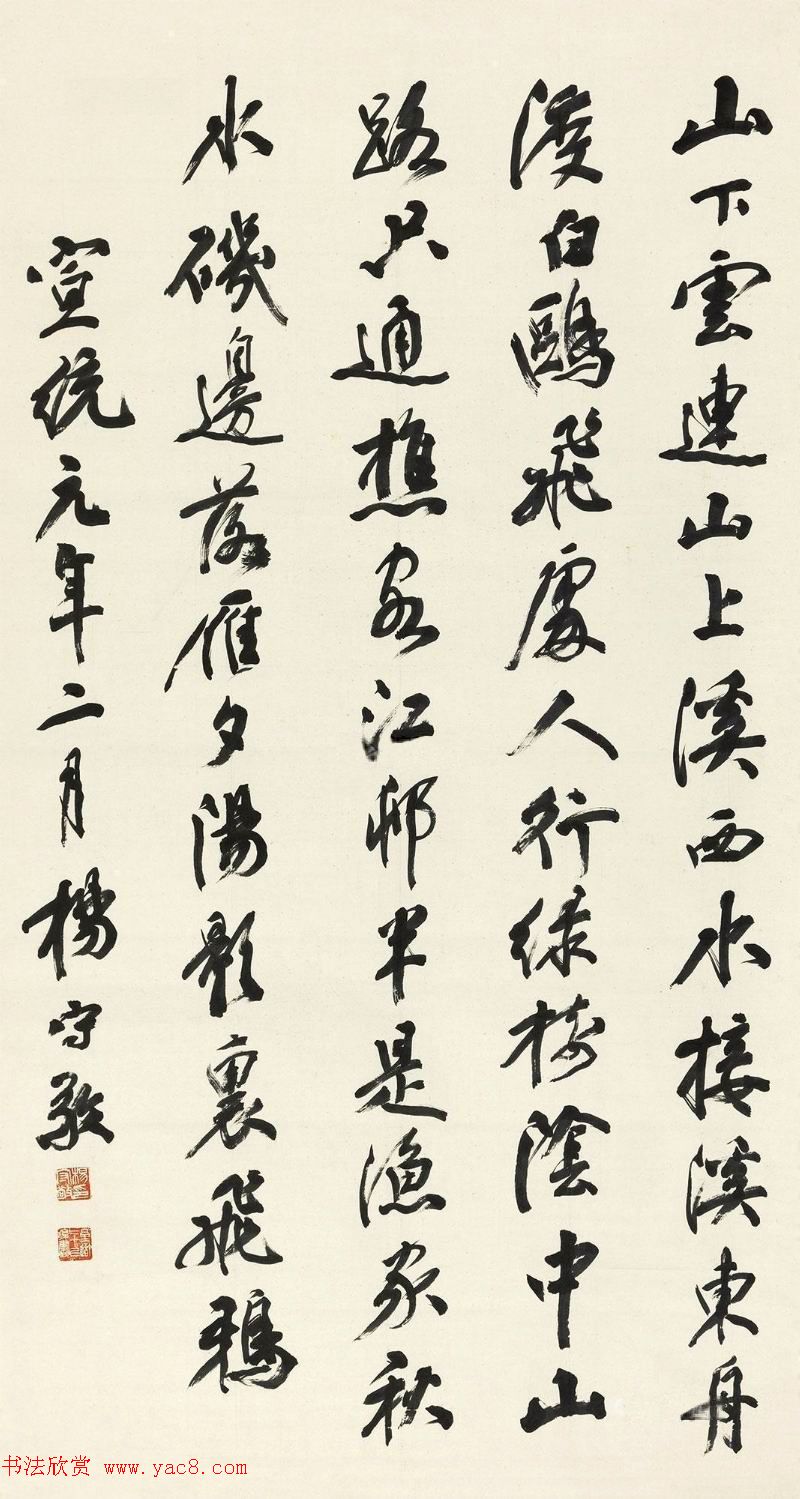 山下雲連山上溪西水接溪東舟
渡白鷗飛處人行綠樹陰中山
路只通樵客江邨半是漁家秋
水磯邊落雁夕陽影裏飛鴉
宣統元年二月楊守敬
书法欣赏 www.yac8.com